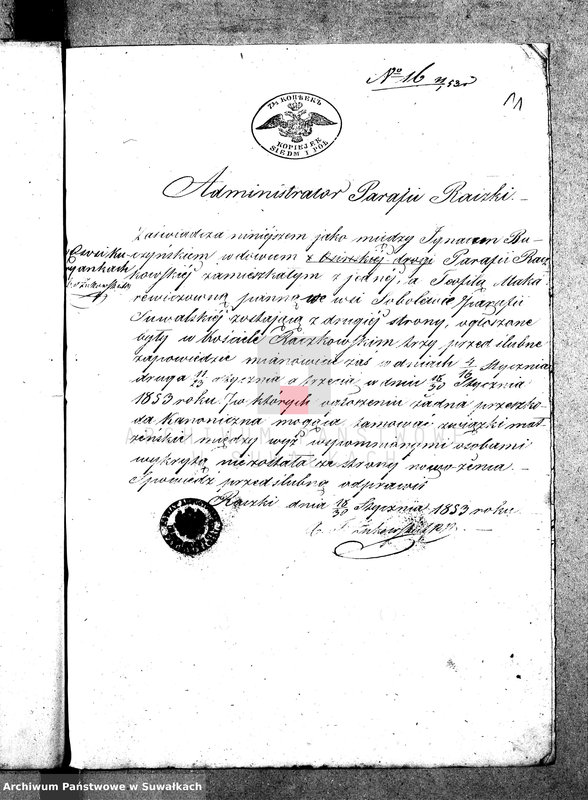 No 16 53r
7½ КОПѢЕКЪ
KOPIEJEK
SIEDM I PÓŁ
Administrator Parafii Raczki
Zaświadcza niniejszem jako między Ignacem Bu-
czyńskim wdowcem z drogi Parafii Racz
kowskiej zamieszkałym z jednej, a Teofilą Maka
rewiczówną panną we wsi Sobolewie Parafii
Suwalskiej zostającą z drugiej strony, ogłoszone
były w kościele Raczkowskim trzy przedślubne
zapowiedzie mianowicie zaś w dniach 4/16 Stycznia
druga 11/23 Stycznia a trzecia w dniu 18/30 Stycznia
1853 roku. Po których ogłoszeniu żadna przeszko-
da Kanoniczna mogąca tamować związki mał
żeńskie między wyż wspomnianymi osobami
wykrytą niezostała ze strony nowożenia.
Spowiedź przedślubną odprawił
Raczki dnia 18/30 Stycznia 1853 roku
ARCHIWUM PAŃSTWOWE
W SUWAŁKACH
Archiwum Państwowe w Suwałkach